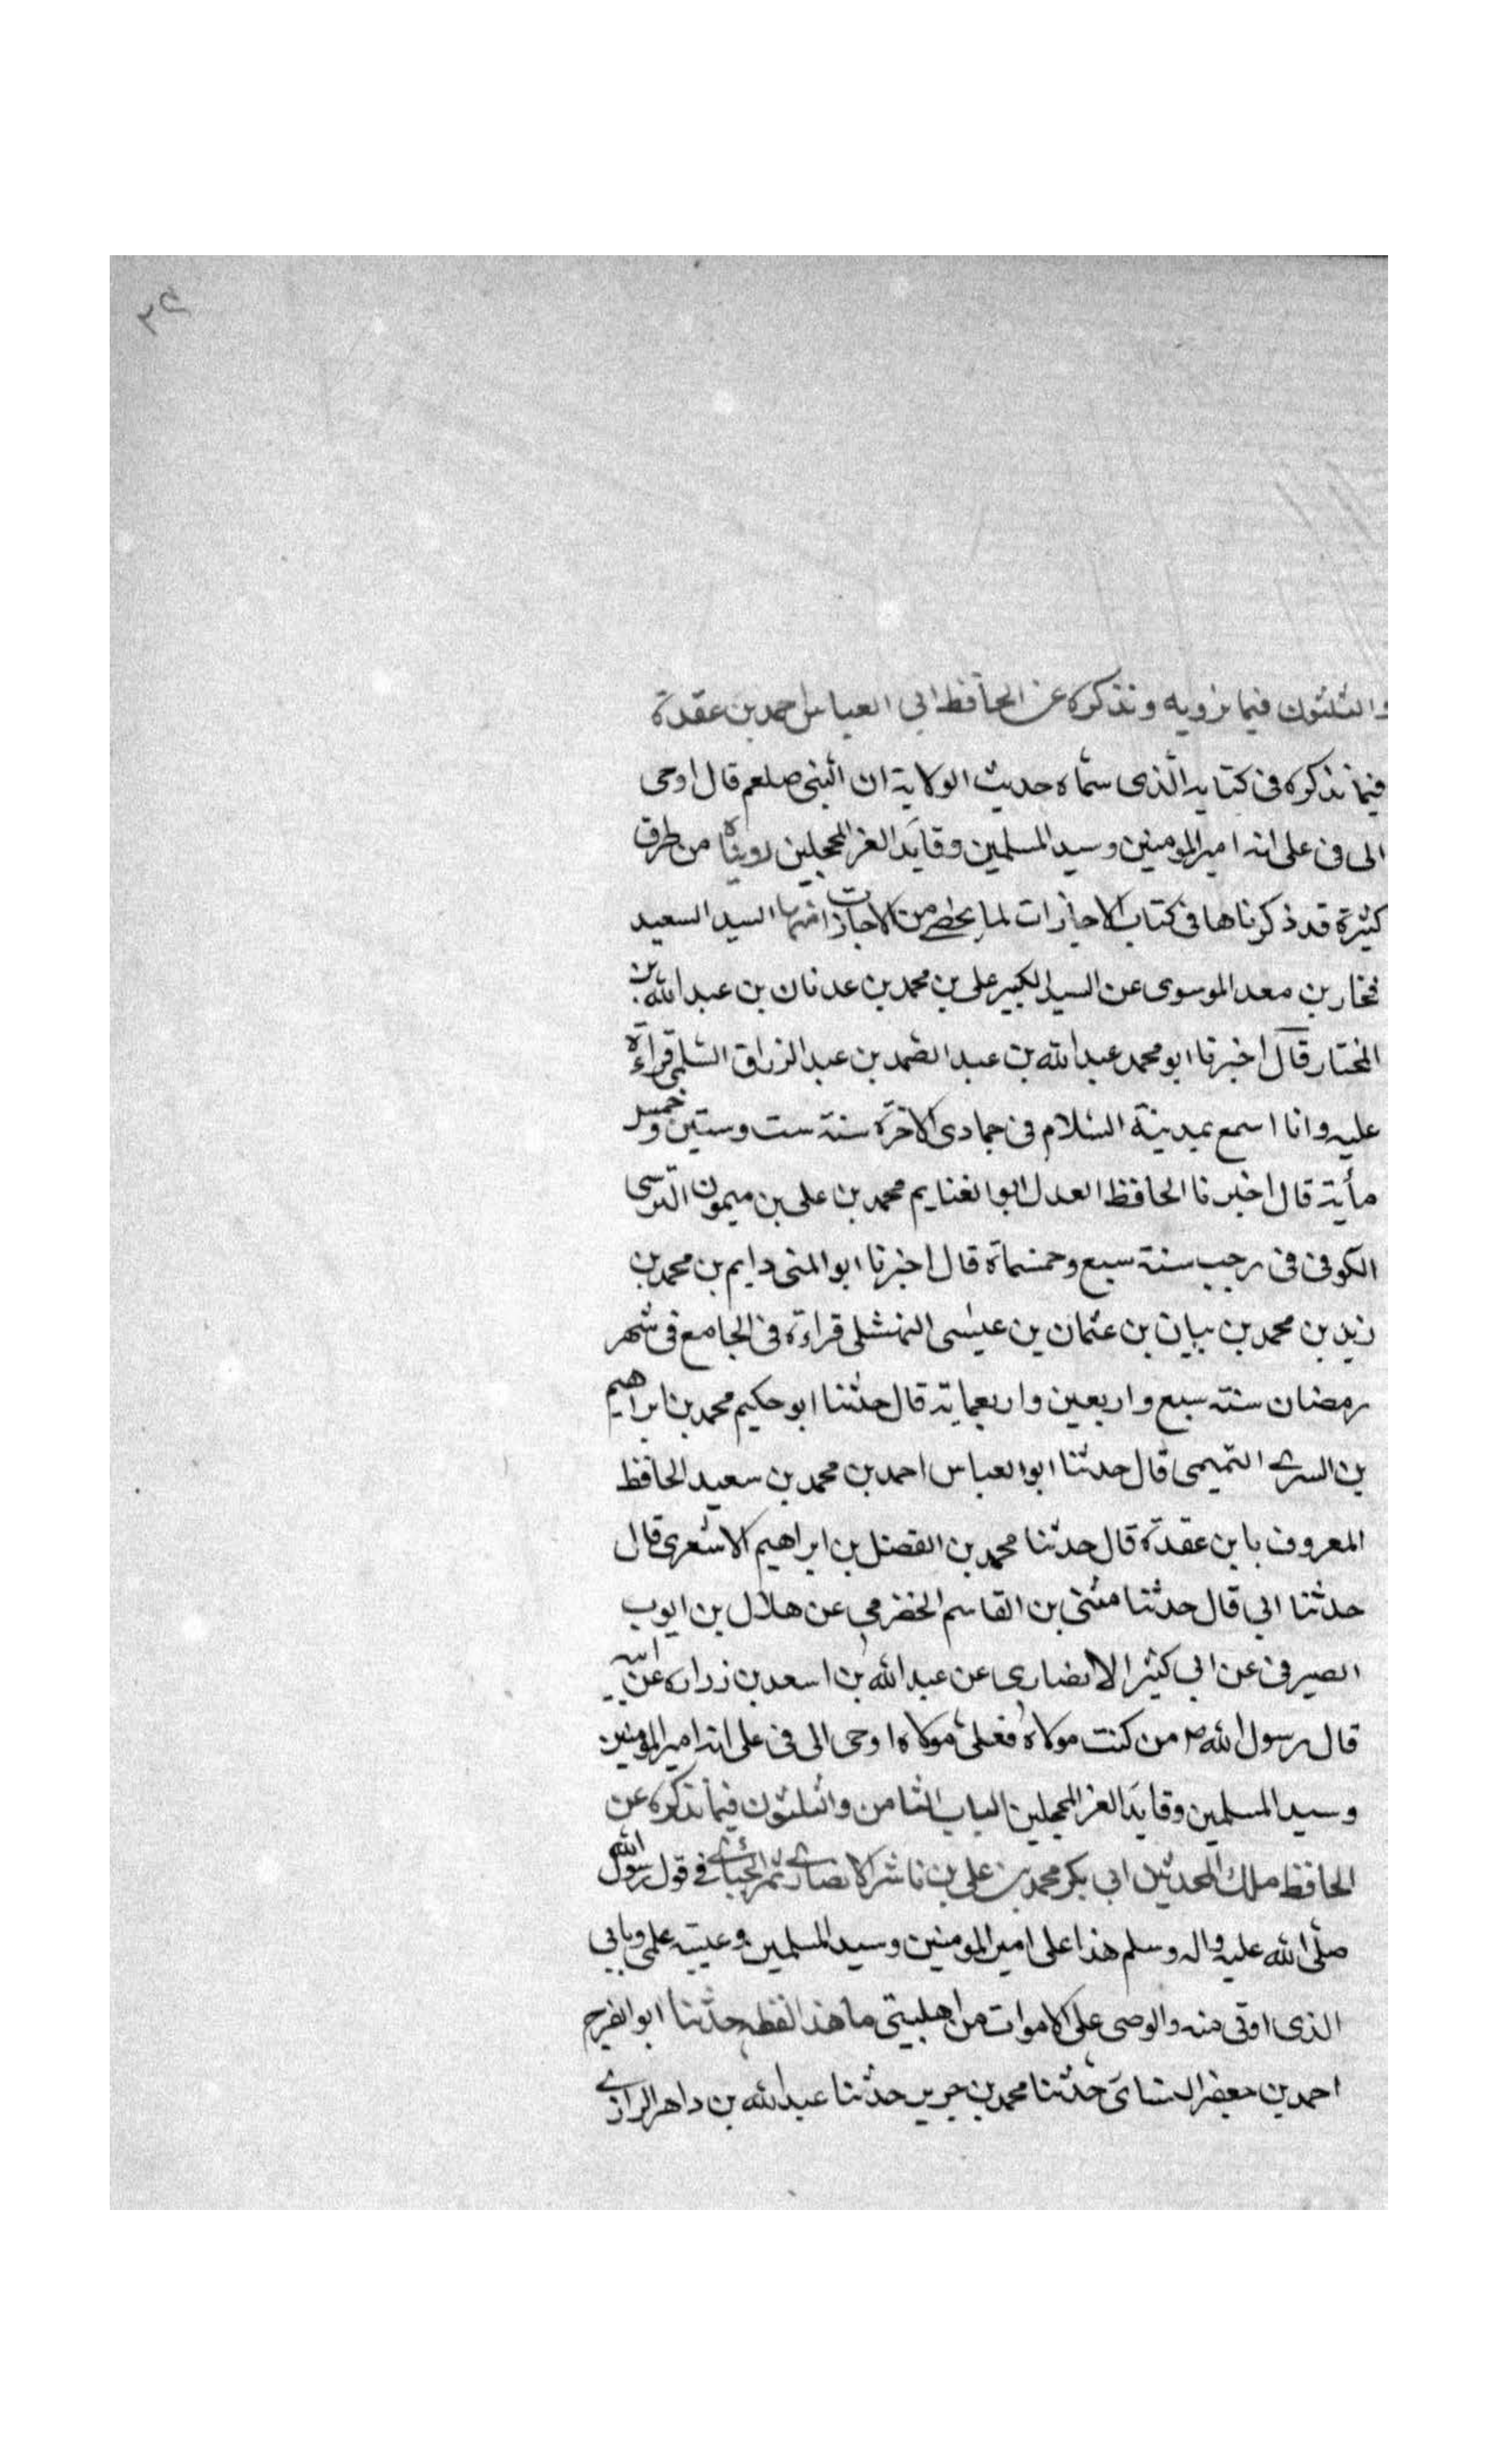 والثلثون فيما نرويه ونذكره عن الحافظ ابي العباس احمد بن عقدة
فيما نذكره في كتابه الذي سماه حديث الولاية ان النبي صلعم قال اوحى
الى في على انه امير المومنين وسيد المسلمين وقايد الغر المحجلين رويناه من طرق
كثيرة قد ذكرناها في كتاب الاجازات لما يخصى من الاجازات منها السيد السعيد
فخار بن معد الموسوى عن السيد الكبير على بن محمد بن عدنان بن عبد الله بن
المختار قال اخبرنا ابو محمد عبد الله بن عبد الصمد بن عبد الرزاق السلمي قراءة
عليه وانا اسمع بمدينة السلام في جمادى الاخرة سنة ست وستين وخمس
مأية قال اخبرنا الحافظ العدل ابو الغنايم محمد بن على بن ميمون النرسى
الكوفى في رجب سنة سبع وخمسماة قال اخبرنا ابو المثنى دايم بن محمد بن
زيد بن محمد بن بيان بن عثمان بن عيسى النهشلى قراءة في الجامع في شهر
رمضان سنة سبع واربعين واربعماية قال حدثنا ابو حكيم محمد بن ابراهيم
بن السرى التميمى قال حدثنا ابو العباس احمد بن محمد بن سعيد الحافظ
المعروف بابن عقدة قال حدثنا محمد بن الفضل بن ابراهيم الاشعرى قال
حدثنا ابى قال حدثنا مثنى بن القاسم الحضرمي عن هلال بن ايوب
الصيرفى عن ابى كثير الانصارى عن عبد الله بن اسعد بن زراره عن ابيه
قال رسول الله ص من كنت مولاه فعلى مولاه اوحى الى في على انه امير المومنين
وسيد المسلمين وقايد الغر المحجلين الباب الثامن والثلثون فيما نذكره عن
الحافظ ملك المحدثين ابى بكر محمد بن على بن ناشر الانصارى ثم الجيائى في قول رسول الله
صلى الله عليه واله وسلم هذا على امير المومنين وسيد المسلمين وعيبة علمى وبابى
الذى اوتى منه والوصى على الاموات من اهلبيتى ما هذا لفظه حدثنا ابو الفرج
احمد بن جعفر النسائى حدثنا محمد بن جرير حدثنا عبد الله بن داهر الرازى